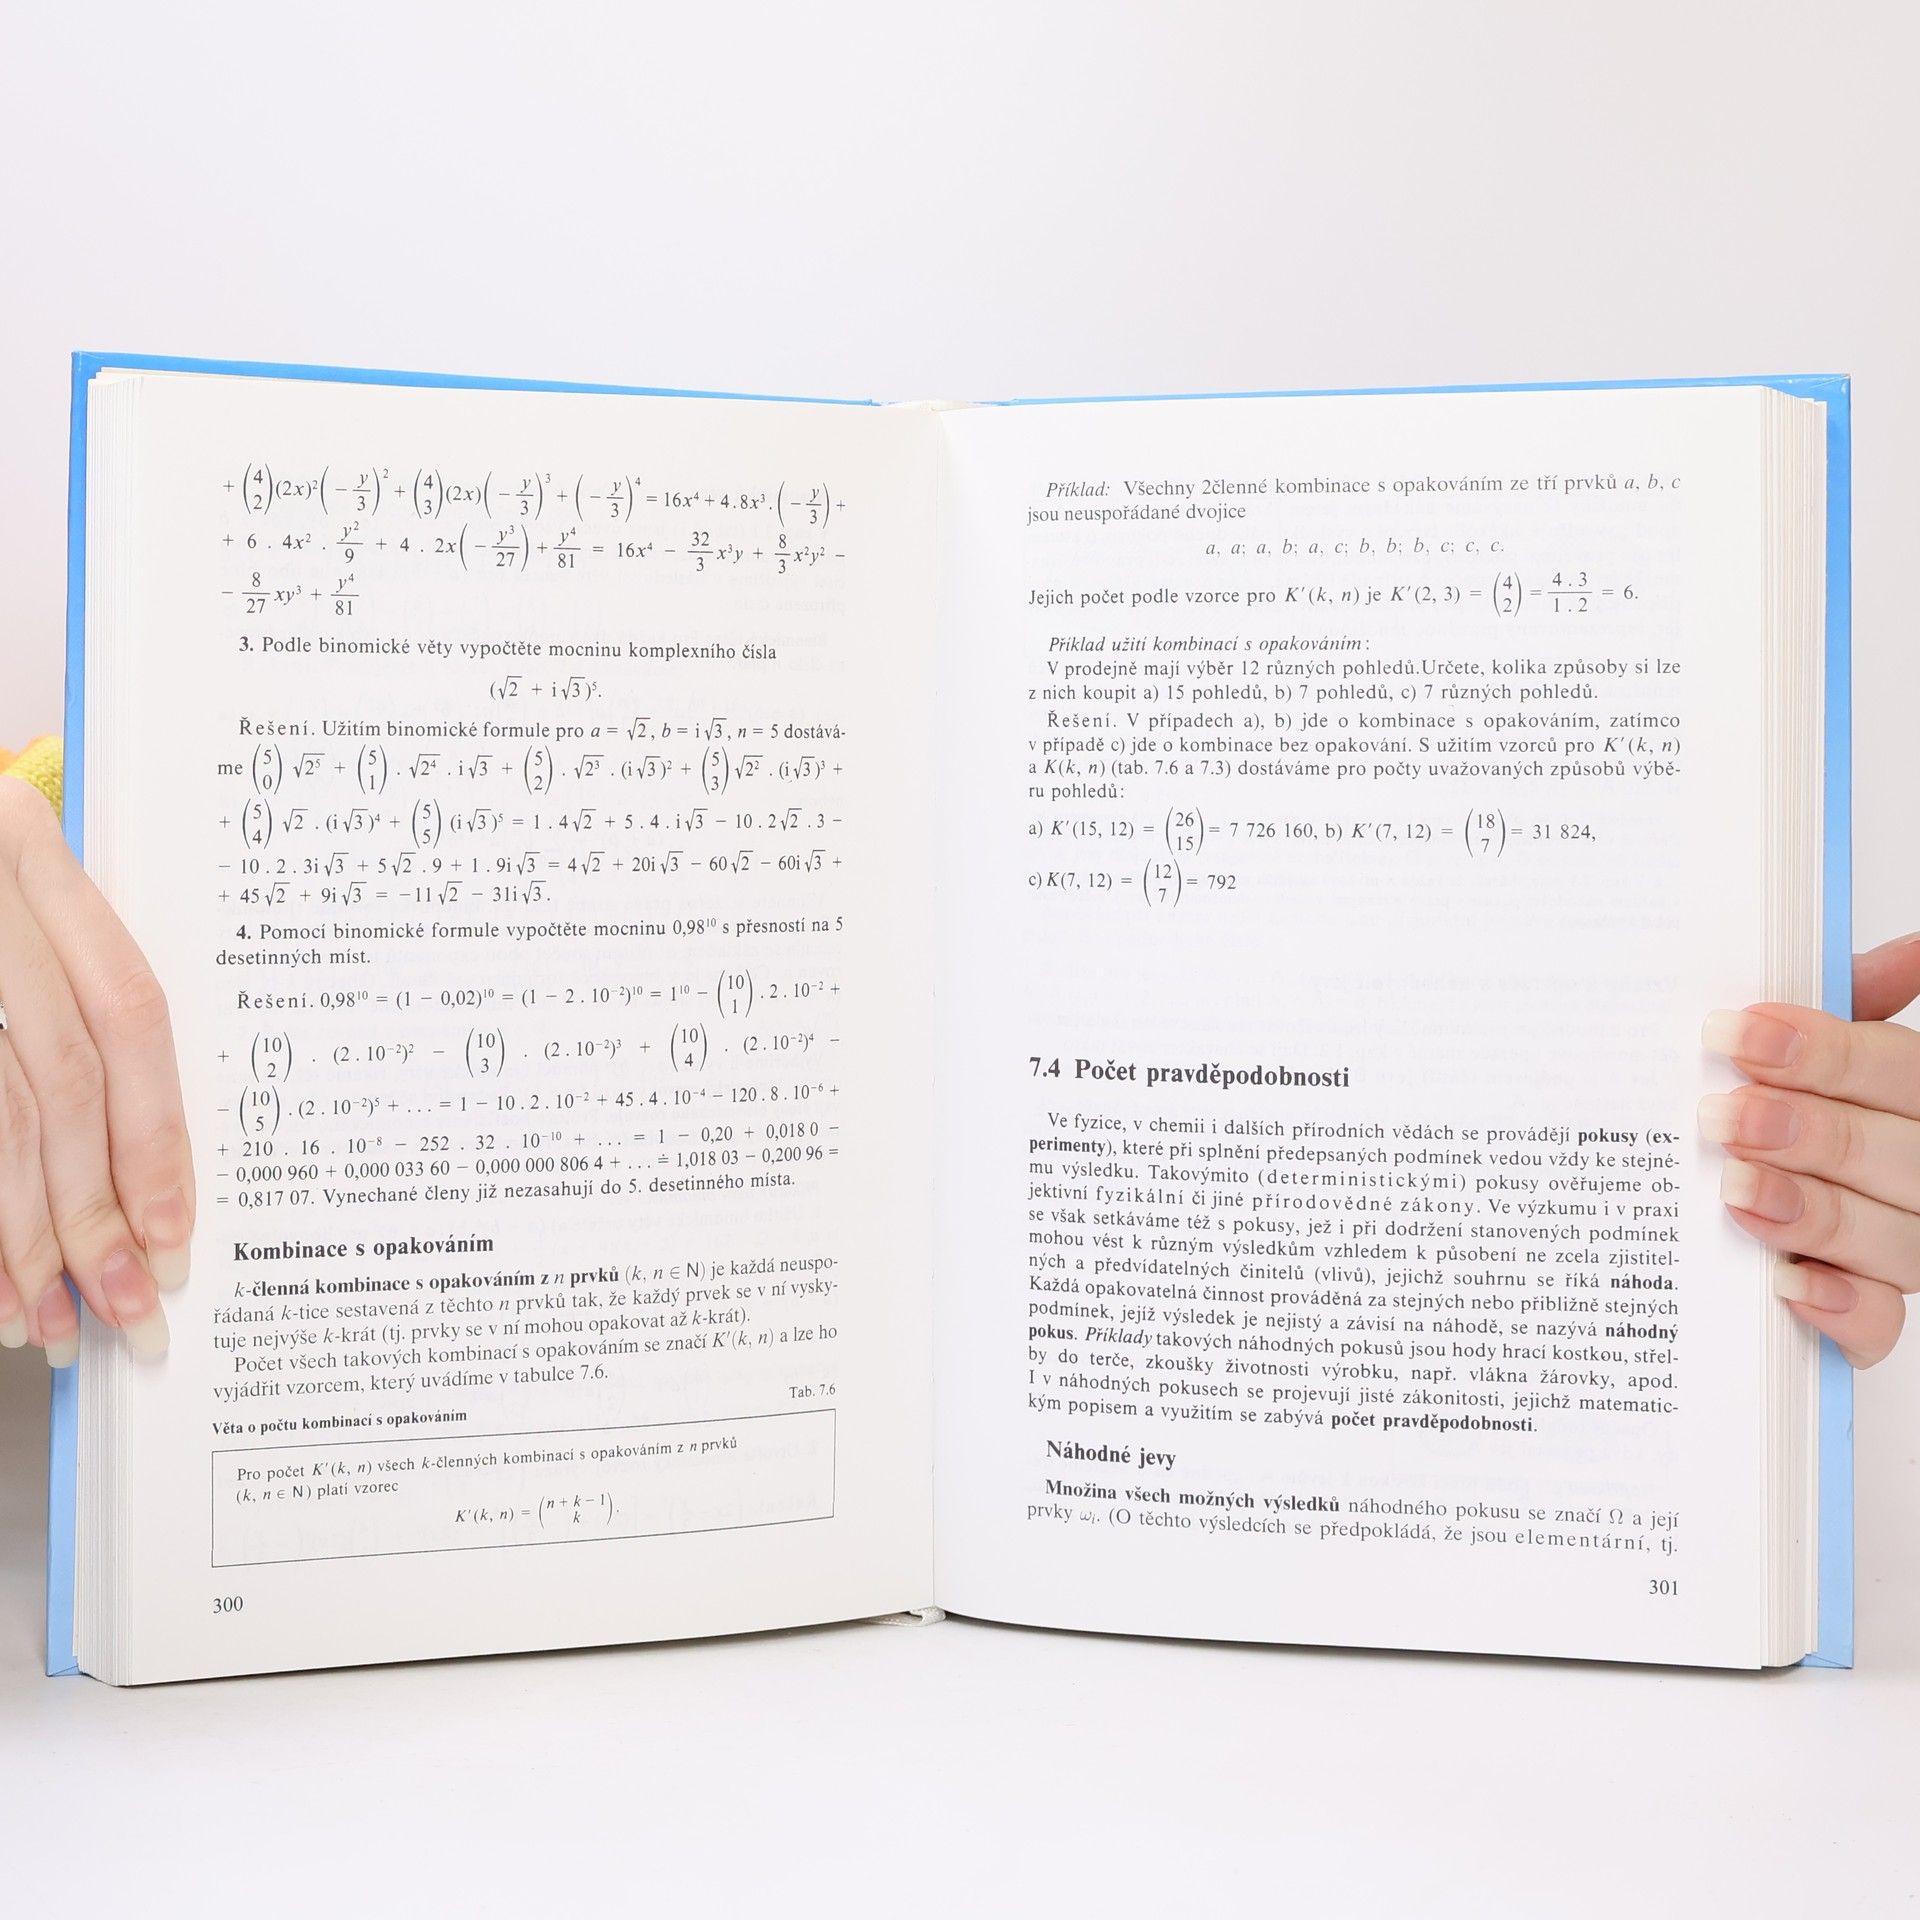 + (4 2)(2x)²(− y/3)² + (4 3)(2x)(− y/3)³ + (− y/3)⁴ = 16x⁴ + 4.8x³.(− y/3) +
+ 6 . 4x² . y²/9 + 4 . 2x(− y³/27) + y⁴/81 = 16x⁴ − 32/3 x³y + 8/3 x²y² −
− 8/27 xy³ + y⁴/81
3. Podle binomické věty vypočtěte mocninu komplexního čísla
(√2 + i√3)⁵.
Řešení. Užitím binomické formule pro a = √2, b = i√3, n = 5 dostává-
me (5 0) √2⁵ + (5 1) . √2⁴ . i√3 + (5 2) . √2³ . (i√3)² + (5 3) √2² . (i√3)³ +
+ (5 4) √2 . (i√3)⁴ + (5 5) (i√3)⁵ = 1 . 4√2 + 5 . 4 . i√3 − 10 . 2√2 . 3 −
− 10 . 2 . 3i√3 + 5√2 . 9 + 1 . 9i√3 = 4√2 + 20i√3 − 60√2 − 60i√3 +
+ 45√2 + 9i√3 = −11√2 − 31i√3.
4. Pomocí binomické formule vypočtěte mocninu 0,98¹⁰ s přesností na 5
desetinných míst.
Řešení. 0,98¹⁰ = (1 − 0,02)¹⁰ = (1 − 2 . 10⁻²)¹⁰ = 1¹⁰ − (10 1) . 2 . 10⁻² +
+ (10 2) . (2 . 10⁻²)² − (10 3) . (2 . 10⁻²)³ + (10 4) . (2 . 10⁻²)⁴ −
− (10 5) . (2 . 10⁻²)⁵ + . . . = 1 − 10 . 2 . 10⁻² + 45 . 4 . 10⁻⁴ − 120 . 8 . 10⁻⁶ +
+ 210 . 16 . 10⁻⁸ − 252 . 32 . 10⁻¹⁰ + . . . = 1 − 0,20 + 0,018 0 −
− 0,000 960 + 0,000 033 60 − 0,000 000 806 4 + . . . ≐ 1,018 03 − 0,200 96 =
= 0,817 07. Vynechané členy již nezasahují do 5. desetinného místa.
Kombinace s opakováním
k-členná kombinace s opakováním z n prvků (k, n ∈ N) je každá neuspo-
řádaná k-tice sestavená z těchto n prvků tak, že každý prvek se v ní vysky-
tuje nejvýše k-krát (tj. prvky se v ní mohou opakovat až k-krát).
Počet všech takových kombinací s opakováním se značí K′(k, n) a lze ho
vyjádřit vzorcem, který uvádíme v tabulce 7.6.
Tab. 7.6
Věta o počtu kombinací s opakováním
Pro počet K′(k, n) všech k-členných kombinací s opakováním z n prvků
(k, n ∈ N) platí vzorec
K′(k, n) = (n + k − 1 k).
300
Příklad: Všechny 2členné kombinace s opakováním ze tří prvků a, b, c
jsou neuspořádané dvojice
a, a; a, b; a, c; b, b; b, c; c, c.
Jejich počet podle vzorce pro K′(k, n) je K′(2, 3) = (4 2) = 4 . 3/1 . 2 = 6.
Příklad užití kombinací s opakováním:
V prodejně mají výběr 12 různých pohledů.Určete, kolika způsoby si lze
z nich koupit a) 15 pohledů, b) 7 pohledů, c) 7 různých pohledů.
Řešení. V případech a), b) jde o kombinace s opakováním, zatímco
v případě c) jde o kombinace bez opakování. S užitím vzorců pro K′(k, n)
a K(k, n) (tab. 7.6 a 7.3) dostáváme pro počty uvažovaných způsobů výbě-
ru pohledů:
a) K′(15, 12) = (26 15) = 7 726 160, b) K′(7, 12) = (18 7) = 31 824,
c) K(7, 12) = (12 7) = 792
7.4 Počet pravděpodobnosti
Ve fyzice, v chemii i dalších přírodních vědách se provádějí pokusy (ex-
perimenty), které při splnění předepsaných podmínek vedou vždy ke stejné-
mu výsledku. Takovýmito (deterministickými) pokusy ověřujeme ob-
jektivní fyzikální či jiné přírodovědné zákony. Ve výzkumu i v praxi
se však setkáváme též s pokusy, jež i při dodržení stanovených podmínek
mohou vést k různým výsledkům vzhledem k působení ne zcela zjistitel-
ných a předvídatelných činitelů (vlivů), jejichž souhrnu se říká náhoda.
Každá opakovatelná činnost prováděná za stejných nebo přibližně stejných
podmínek, jejíž výsledek je nejistý a závisí na náhodě, se nazývá náhodný
pokus. Příklady takových náhodných pokusů jsou hody hrací kostkou, střel-
by do terče, zkoušky životnosti výrobku, např. vlákna žárovky, apod.
I v náhodných pokusech se projevují jisté zákonitosti, jejichž matematic-
kým popisem a využitím se zabývá počet pravděpodobnosti.
Náhodné jevy
Množina všech možných výsledků náhodného pokusu se značí Ω a její
prvky ωᵢ. (O těchto výsledcích se předpokládá, že jsou elementární, tj.
301